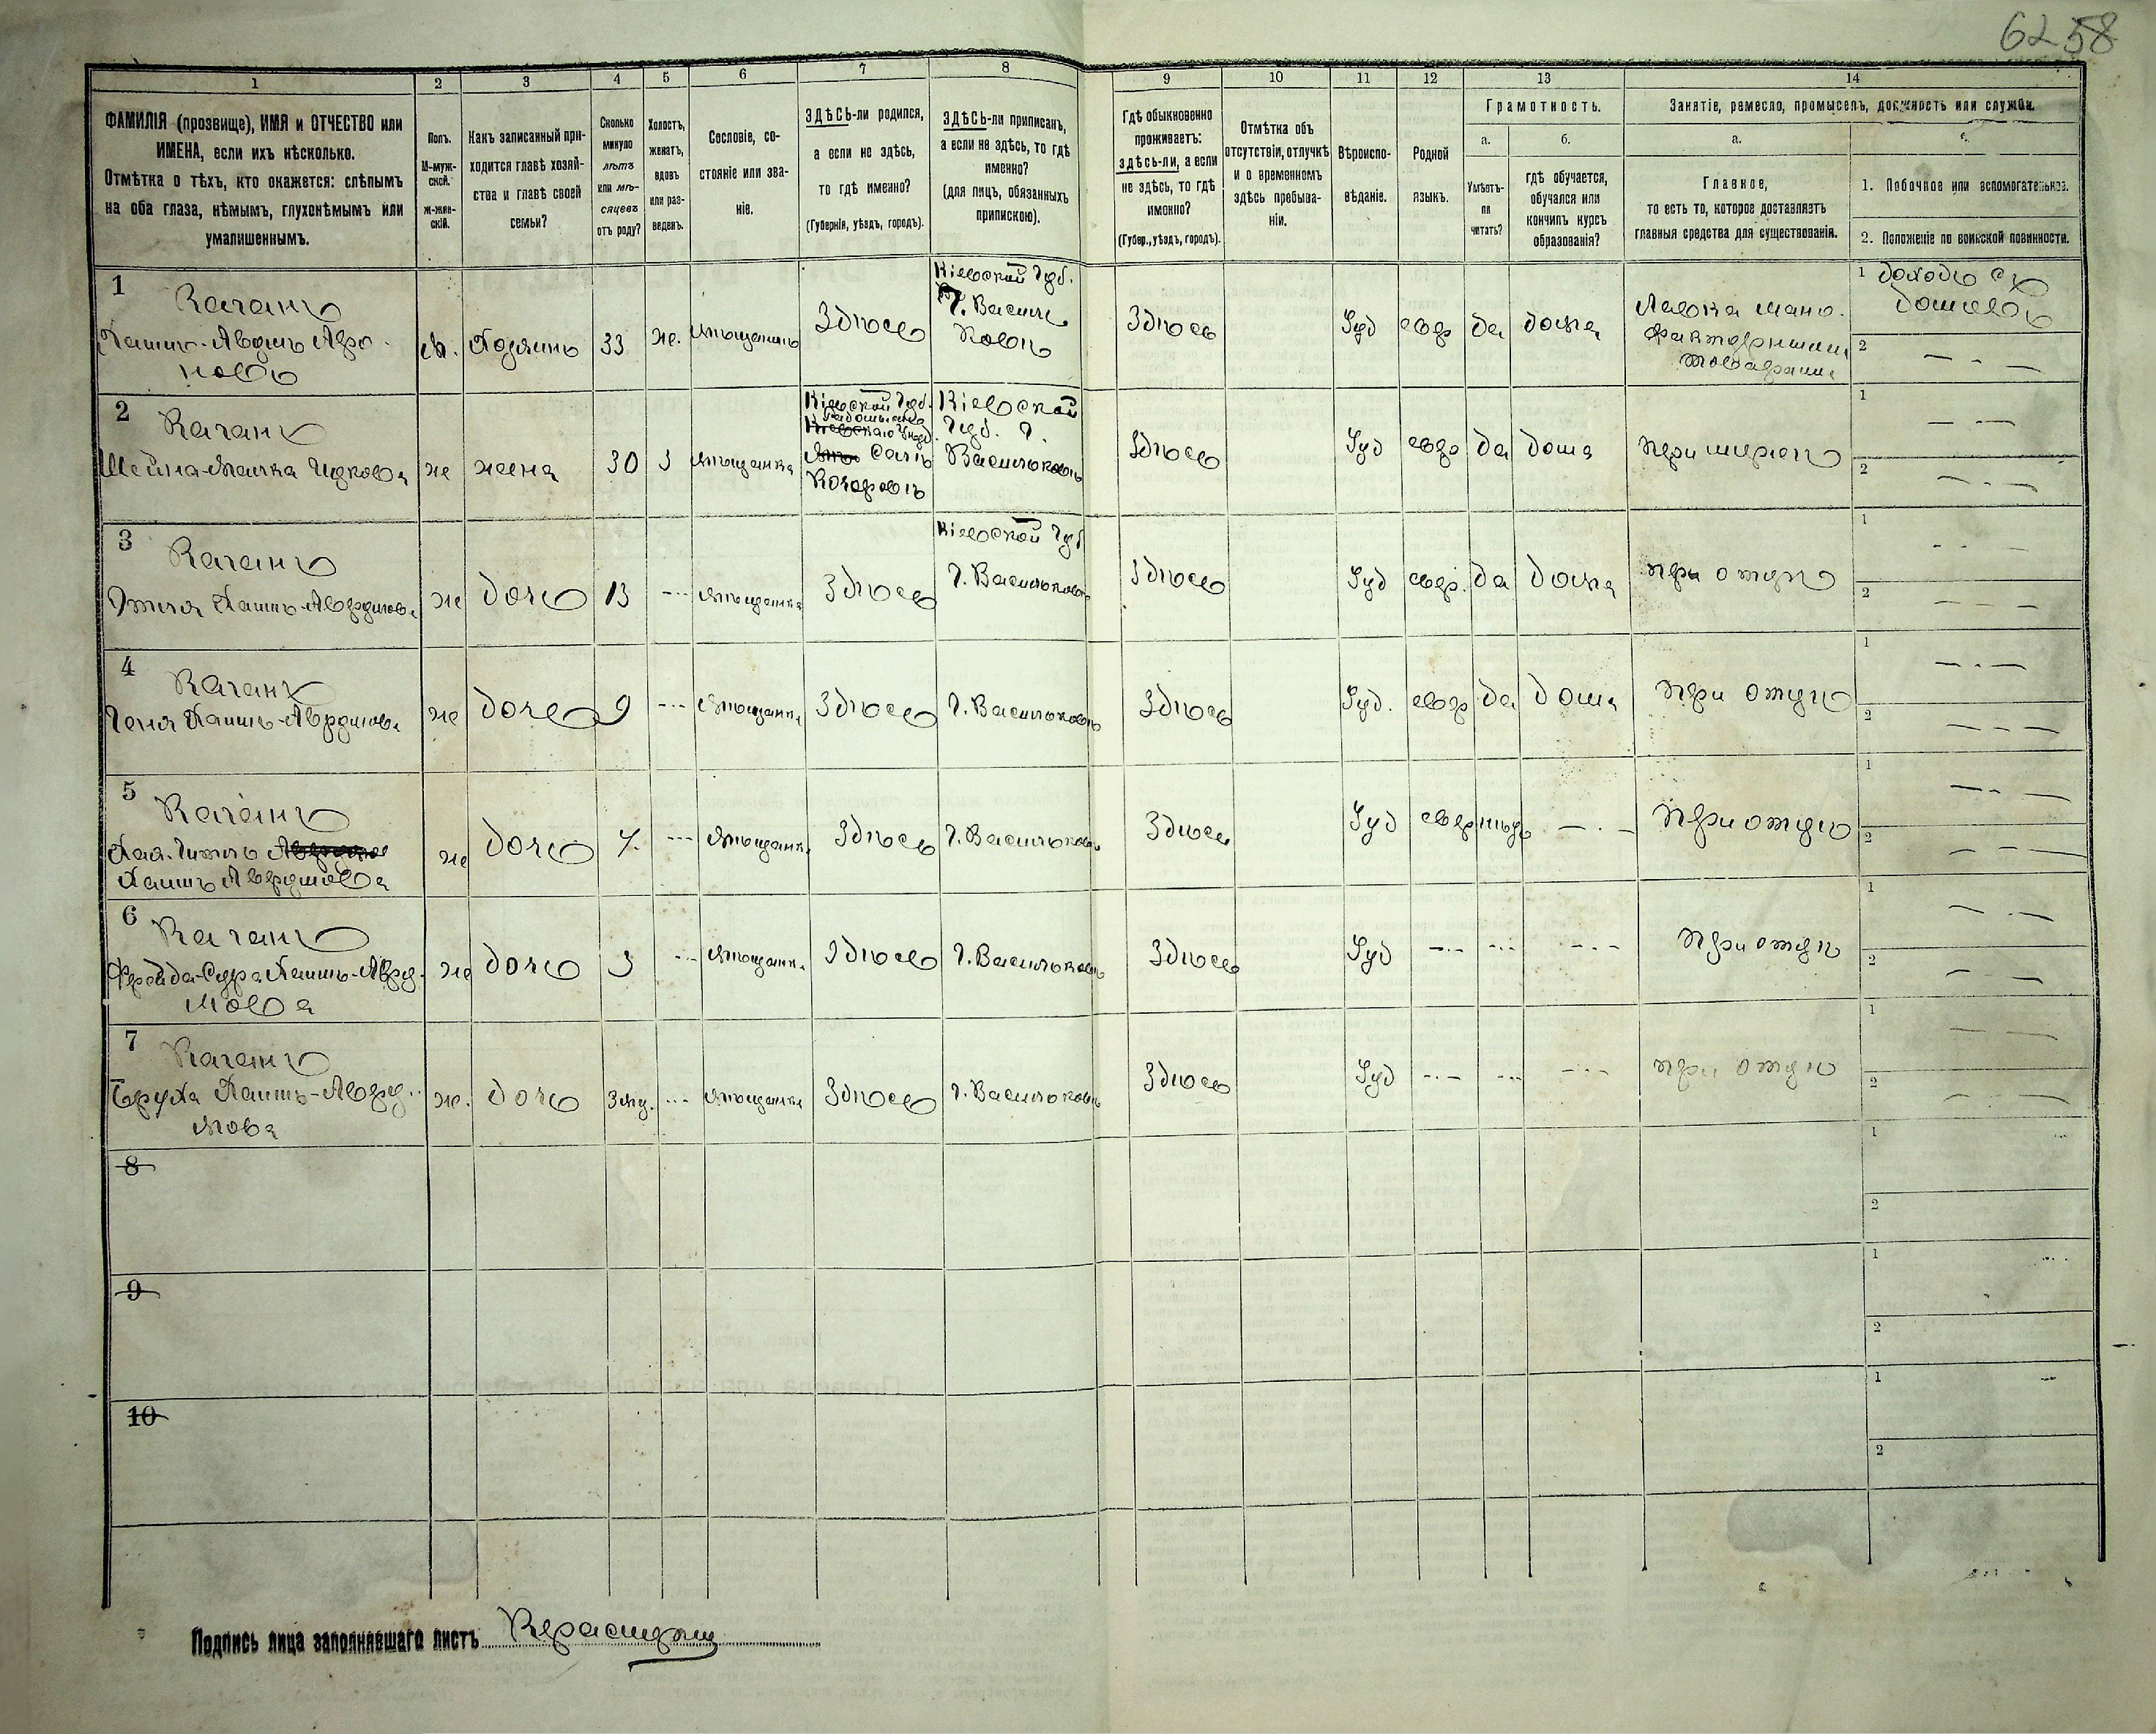 62 58
1 2 3 4 5 6 7 8 9 10 11 12 13 14
ФАМИЛІЯ (прозвище), ИМЯ и ОТЧЕСТВО или
ИМЕНА, если ихъ нѣсколько.
Отмѣтка о тѣхъ, кто окажется: слѣпымъ
на оба глаза, нѣмымъ, глухонѣмымъ или
умалишеннымъ.
Полъ.
М-муж-
ской.
Ж-жен-
скій.
Какъ записанный при-
ходится главѣ хозяй-
ства и главѣ своей
семьи?
Сколько
минуло
лѣтъ
или мѣ-
сяцевъ
отъ роду?
Холостъ,
женатъ,
вдовъ
или раз-
веденъ.
Сословіе, со-
стояніе или зва-
ніе.
ЗДѢСЬ-ли родился,
а если не здѣсь,
то гдѣ именно?
(Губернія, уѣздъ, городъ).
ЗДѢСЬ-ли приписанъ,
а если не здѣсь, то гдѣ
именно?
(для лицъ, обязанныхъ
припискою).
Гдѣ обыкновенно
проживаетъ:
здѣсь-ли, а если
не здѣсь, то гдѣ
именно?
(Губер., уѣздъ, городъ).
Отмѣтка объ
отсутствіи, отлучкѣ
и о временномъ
здѣсь пребыва-
ніи.
Вѣроиспо-
вѣданіе.
Родной
языкъ.
Грамотность.
а.
Умѣетъ-
ли
читать?
б.
гдѣ обучается,
обучался или
кончилъ курсъ
образованія?
Занятіе, ремесло, промыселъ, должность или служба.
а.
Главное,
то есть то, которое доставляетъ
главныя средства для существованія.
1. Побочное или вспомогательное.
2. Положеніе по воинской повинности.
1 Каганъ
Хаимъ-Аврумъ Аро-
новъ
м. Хозяинъ 33 же. мѣщанинъ Здѣсь
Кіевской Губ.
г. Василь
ковъ
Здѣсь Iуд евр да дома
Лавка ману-
фактурными
товарами
1 доходъ съ
домовъ
2
2 Каганъ
Шейна-Малка Ицкова же жена 30 З мѣщанка
Кіевской Губ.
Кіевскаго Уѣзд.
Кочеровъ
Кіевской
Губ. г.
Васильковъ
Здѣсь Iуд евр да дома при мужѣ
1
2
3 Каганъ
Хаимъ-Аврумова же дочь 13 мѣщанка Здѣсь
Кіевской Губ
г. Васильковъ
Здѣсь Iуд евр. да дома при отцѣ
1
2
4 Каганъ
Геня Хаимъ-Аврумова же дочь 9 мѣщанка Здѣсь г. Васильковъ Здѣсь Iуд. евр да дома при отцѣ
1
2
5 Каганъ
Хаимъ Аврумова
же дочь 7. мѣщанка Здѣсь г. Васильковъ Здѣсь Iуд евр нѣтъ при отцѣ
1
2
6 Каганъ
Фрейда-Сура Хаимъ-Авру-
мова
же дочь 3 мѣщанка Здѣсь г. Васильковъ Здѣсь Iуд при отцѣ
1
2
7 Каганъ
Бруха Хаимъ-Авру-
мова
же. дочь 3 мц. мѣщанка Здѣсь г. Васильковъ Здѣсь Iуд при отцѣ
1
2
8
1
2
9
1
2
10
1
2
Подпись лица заполнявшаго листъ